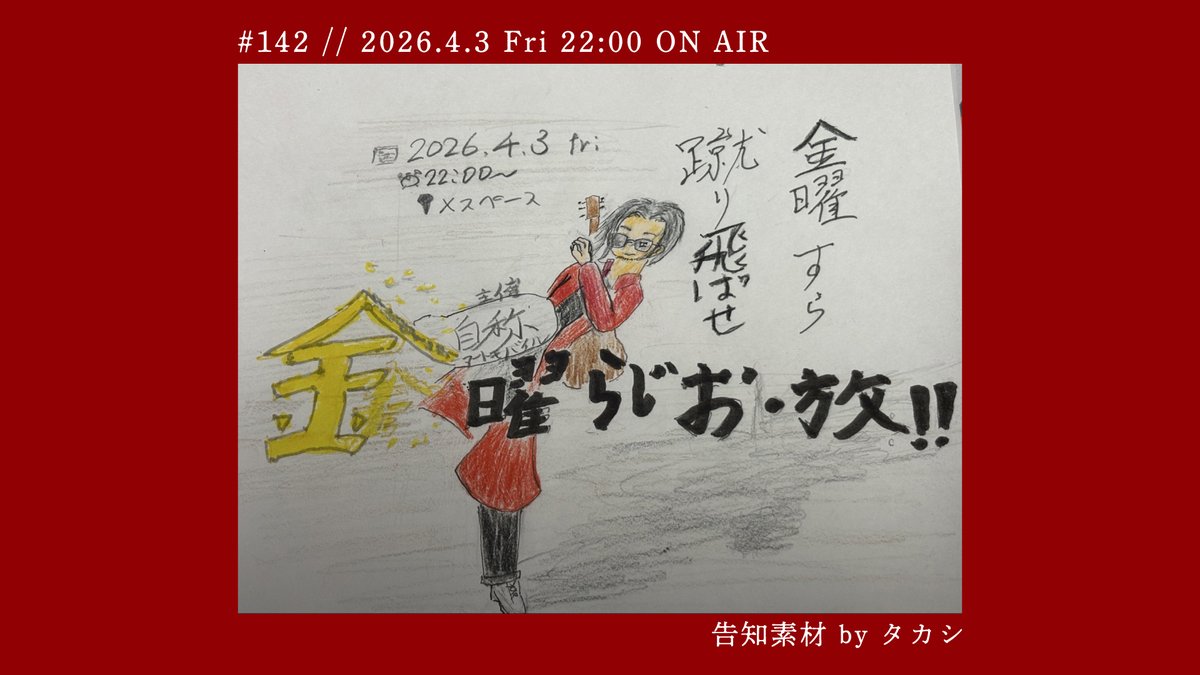 #142 // 2026.4.3 Fri 22:00 ON AIR
2026.4.3 fri
22:00〜
Xスペース
金曜すら
蹴り飛ばせ
主催
自称
アートサバイバー
金曜らじお・放!!
告知素材 by タカシ